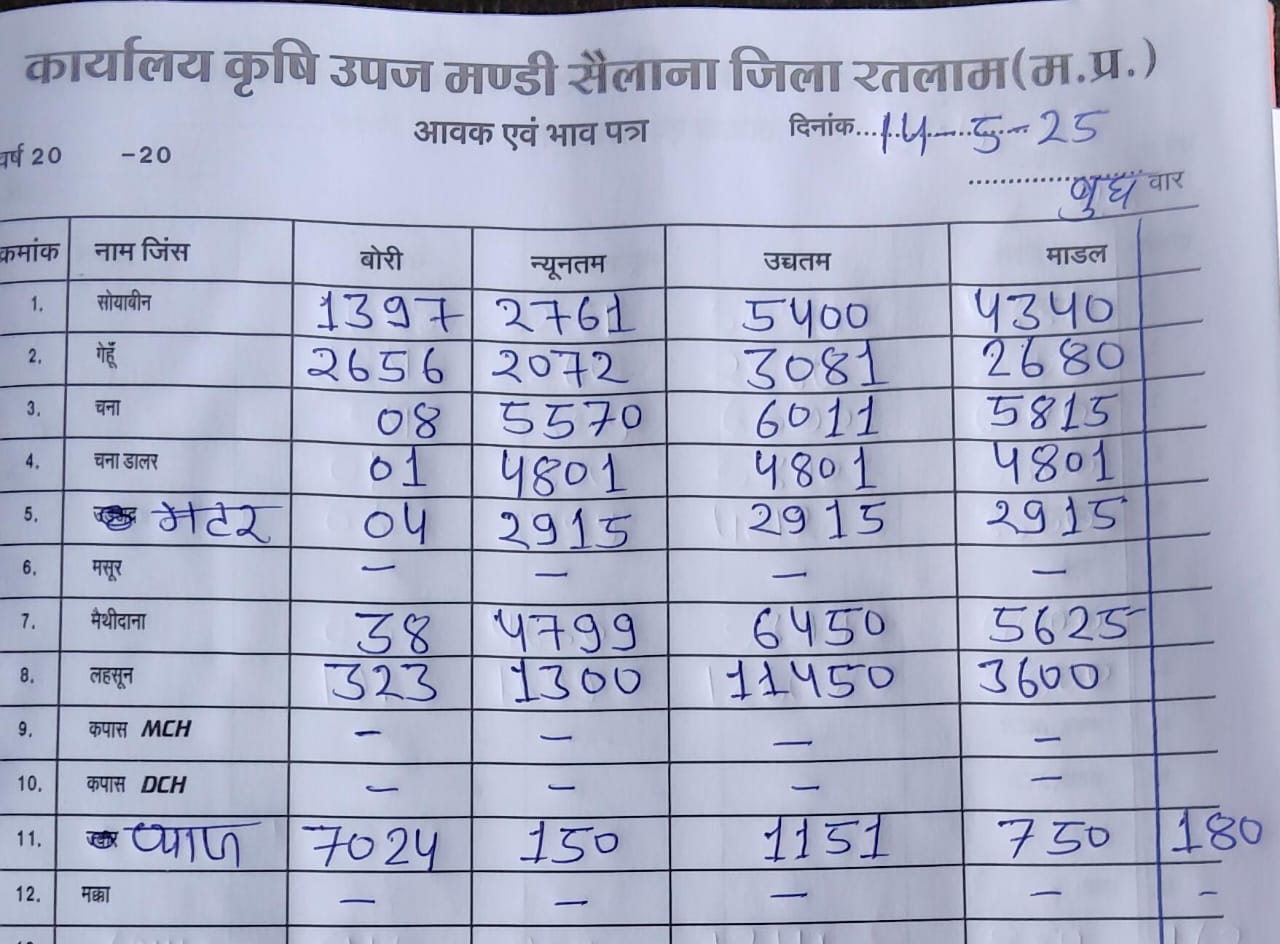 कार्यालय कृषि उपज मण्डी सैलाना जिला रतलाम(म.प्र.)
आवक एवं भाव पत्र दिनांक...14-5-25
वर्ष 20 -20
बुध वार
क्रमांक नाम जिंस बोरी न्यूनतम उच्चतम माडल
1. सोयाबीन 1397 2761 5400 4340
2. गेहूँ 2656 2072 3081 2680
3. चना 08 5570 6011 5815
4. चना डालर 01 4801 4801 4801
5. मटर 04 2915 2915 2915
6. मसूर – – – –
7. मैथीदाना 38 4799 6450 5625
8. लहसून 323 1300 11450 3600
9. कपास MCH – – – –
10. कपास DCH – – – –
11. प्याज 7024 150 1151 750 180
12. मक्का – – – – –